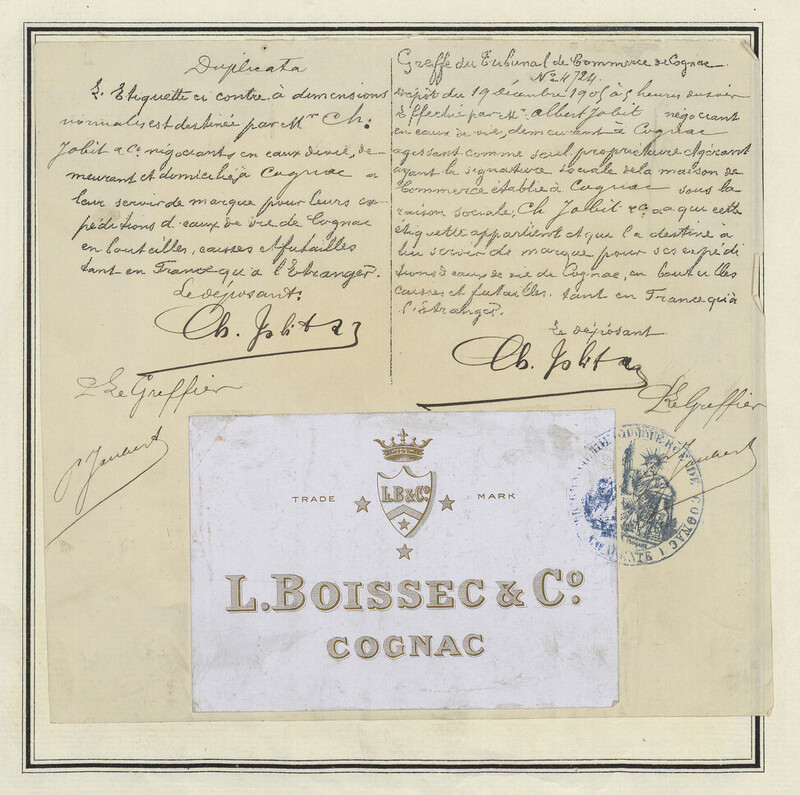 Duplicata
L'Etiquette ci contre à dimensions
normales est destinée par Mr Ch.
Jobit & Co négociants en eaux de vie, de-
meurant et domiciliés à Cognac à
leur servir de marque pour leurs ex-
péditions d'eaux de vie de Cognac
en bouteilles, caisses et futailles
tant en France qu'à l'Etranger.
Le déposant:
Ch. Jobit & Co
Le Greffier
Greffe du Tribunal de Commerce de Cognac
No 4724.
Dépôt du 19 Décembre 190 à 5 heures du soir
Effectué par Mr. Albert Jobit négociant
en eaux de vie, demeurant à Cognac
agissant comme seul propriétaire et gérant
ayant la signature sociale de la maison de
Commerce établie à Cognac sous la
raison sociale, Ch Jobit & Co à qui cette
étiquette appartient et qui l'a destiné à
lui servir de marque pour ses expédi
tions d'eaux de vie de Cognac, en bouteilles
caisses et futailles, tant en France qu'à
l'Etranger.
Le déposant
Ch. Jobit & Co
Le Greffier
TRADE MARK
L.B & Co
L. BOISSEC & Co
COGNAC
COMMERCE DE COGNAC